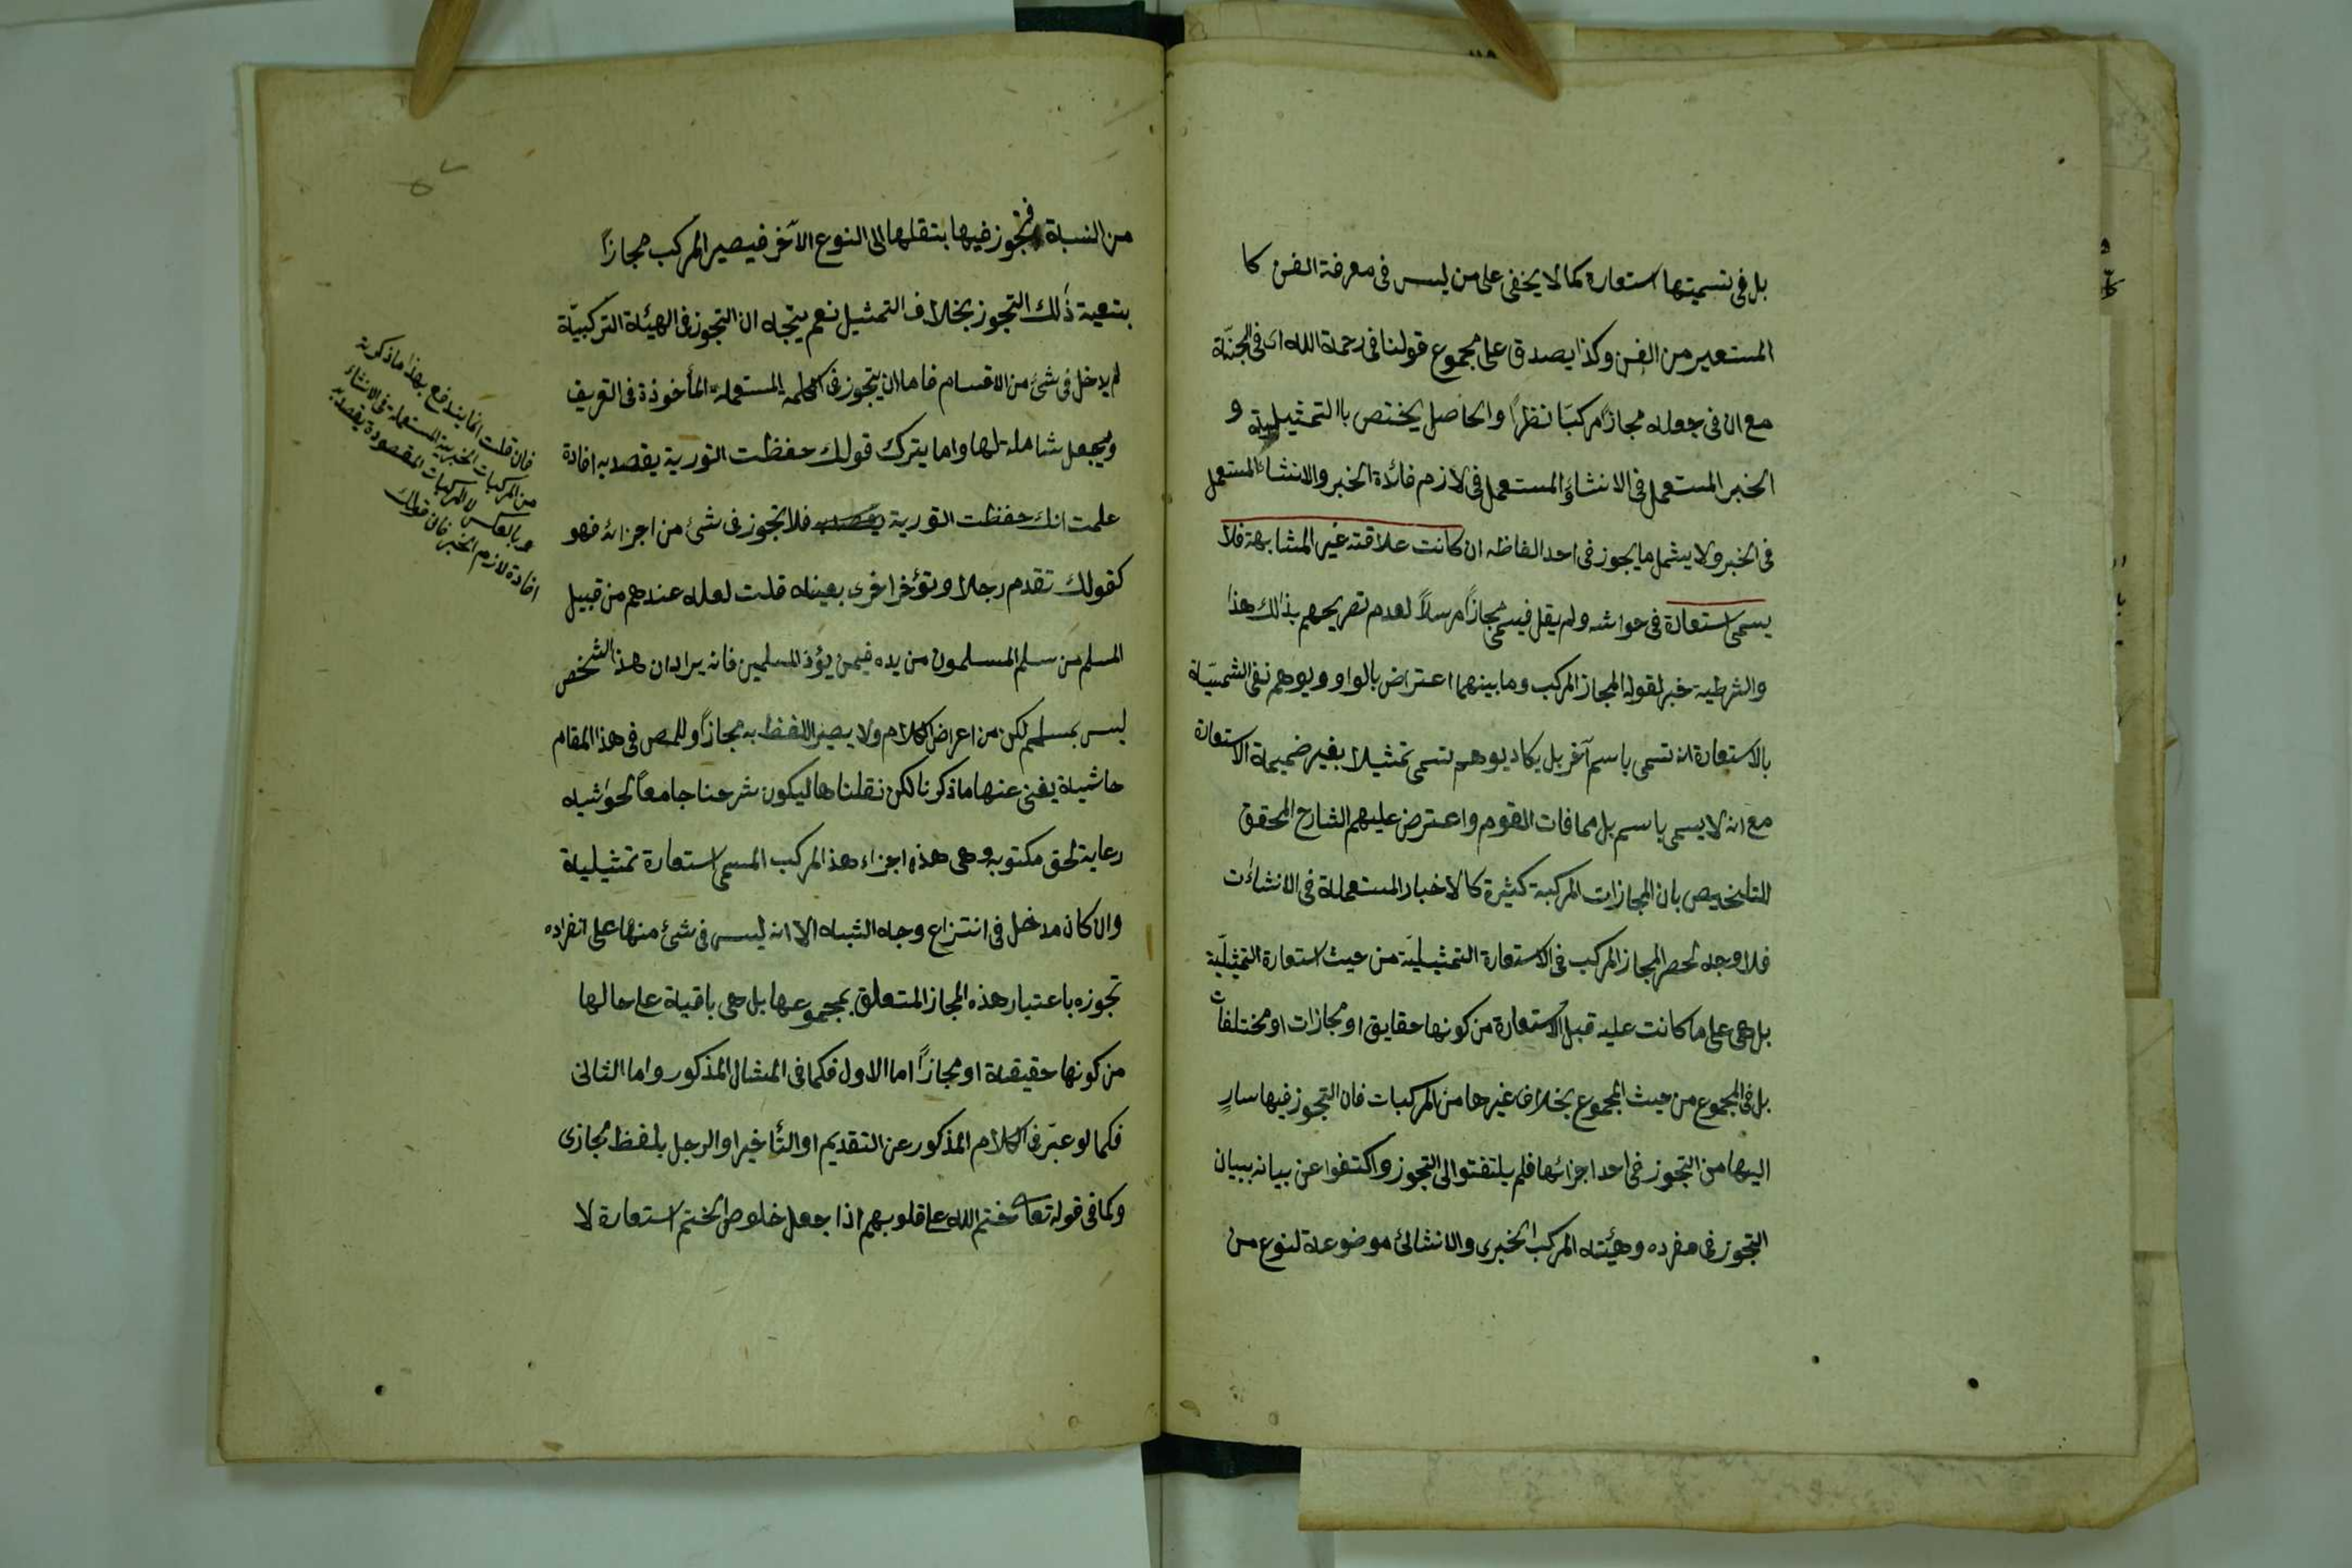 بل فى تسميتها استعارة كما لا يخفى على من ليس فى معرفة الفن كا
المستعير من الفن وكذا يصدق على مجموع قولنا فى رحمة الله اى فى الجنّة
مع ان فى جعله مجازًا مركبًا نظرًا والحاصل يختص بالتمثيلية و
الخبر المستعمل فى الانشاء والمستعمل فى لازم فائدة الخبر والانشاء المستعمل
فى الخبر ولا يشمل ما يجوز فى احد الفاظه ان كانت علاقته غير المشابهة فلا
يسمى استعارة فى حواشه ولم يقل فيسمى مجازًا مرسلاً لعدم تصريحهم بذلك هذا
والشرطية خبر لقوله المجاز المركب وما بينهما اعتراض بالواو ويوهم نفى التسميّة
بالاستعارة ان تسمى باسم آخر بل يكاد يوهم تسمى تمثيلا بغير ضميمة الاستعارة
مع انه لا يسمى باسم بل مما فات القوم واعترض عليهم الشارح المحقق
للتلخيص بان المجازات المركبة كثيرة كالاخبار المستعملة فى الانشاءت
فلا وجه لحصر المجاز المركب فى الاستعارة التمثيليّة من حيث استعارة التمثيليّة
بل هى على ما كانت عليه قبل الاستعارة من كونها حقايق او مجازات او مختلفات
بل فى المجموع من حيث المجموع بخلاف غيرها من المركبات فان التجوز فيها سارٍ
اليها من التجوز فى احد اجزائها فلم يلتفتوا الى التجوز واكتفوا عن بيانه ببيان
التجوز فى مفرده وهيئته المركب الخبرى والانشائى موضوعة لنوع من
من النسبة فتجوز فيها بنقلها الى النوع الآخر فيصير المركب مجازًا
بتبعية ذلك التجوز بخلاف التمثيل نعم يتجه ان التجوز فى الهيئة التركيبيّة
لم يدخل فى شئ من الاقسام فاما ان يتجوز فى الكلمه المستعملة المأخوذة فى التعريف
ويجعل شاملة لها واما يترك قولك حفظت التورية يقصد به افادة
علمت انك حفظت التورية فلا تجوز فى شئ من اجزائه فهو
كقولك تقدم رجلا وتؤخر اخرى بعينه قلت لعله عندهم من قبيل
المسلم من سلم المسلمون من يده فيمن يؤذ المسلمين فانه يراد ان هذا الشخص
ليس بمسلم لكن من اعراض الكلام ولا يصير اللفظ به مجازًا وللمص فى هذا المقام
حاشية يغنى عنها ما ذكرنا لكن نقلناها ليكون شرحنا جامعًا لحواشيه
رعاية لحق مكتوبه وهى هذه اجزاء هذ المركب المسمى استعارة تمثيلية
وان كان مدخل فى انتزاع وجه الشبه الا انه ليس فى شئ منها على انفراده
تجوزه باعتبار هذه المجاز المتعلق بمجموعها بل هى باقية على حالها
من كونها حقيقة او مجازًا اما الاول فكما فى المثال المذكور واما الثانى
فكما لو عبّر فى الكلام المذكور عن التقديم او التأخير او الرجل بلفظ مجازى
وكما فى قوله تعالى ختم الله على قلوبهم اذا جعل خلوص الختم استعارة لا
فان قلت انما يندفع بهذا ما ذكرته
من المركبات الخبرية المستعملة فى الانشاء
وبالعكس لا المركبات المقصودة يقصد به
افادة لازم الخبر فان قولك